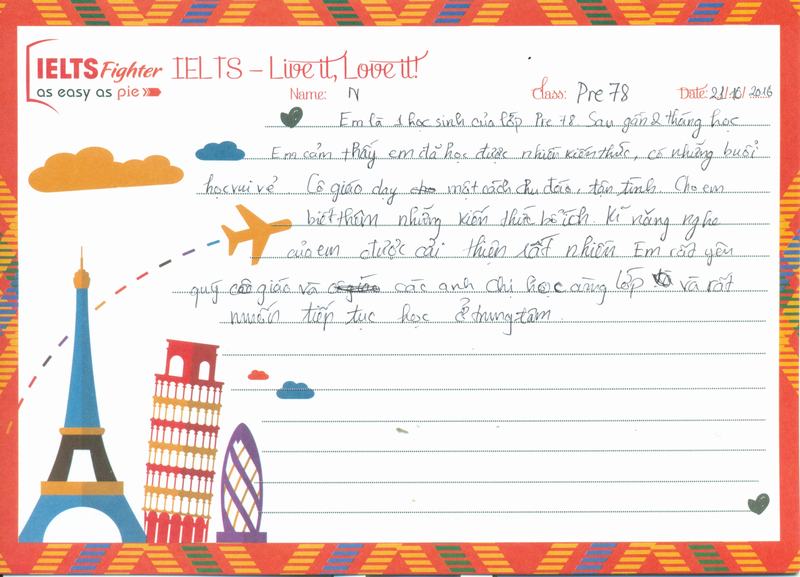 IELTS Fighter
as easy as pie
IELTS – Live it, Love it!
Name: N Class: Pre 78 Date: 21/16/2016
Em là 1 học sinh của lớp Pre 78. Sau gần 2 tháng học
Em cảm thấy em đã học được nhiều kiến thức, có những buổi
học vui vẻ. Cô giáo dạy một cách chu đáo, tận tình. Cho em
biết thêm những kiến thức bổ ích. Kĩ năng nghe
của em được cải thiện rất nhiều. Em rất yêu
quý cô giáo và các anh chị học cùng lớp và rất
muốn tiếp tục học ở trung tâm.